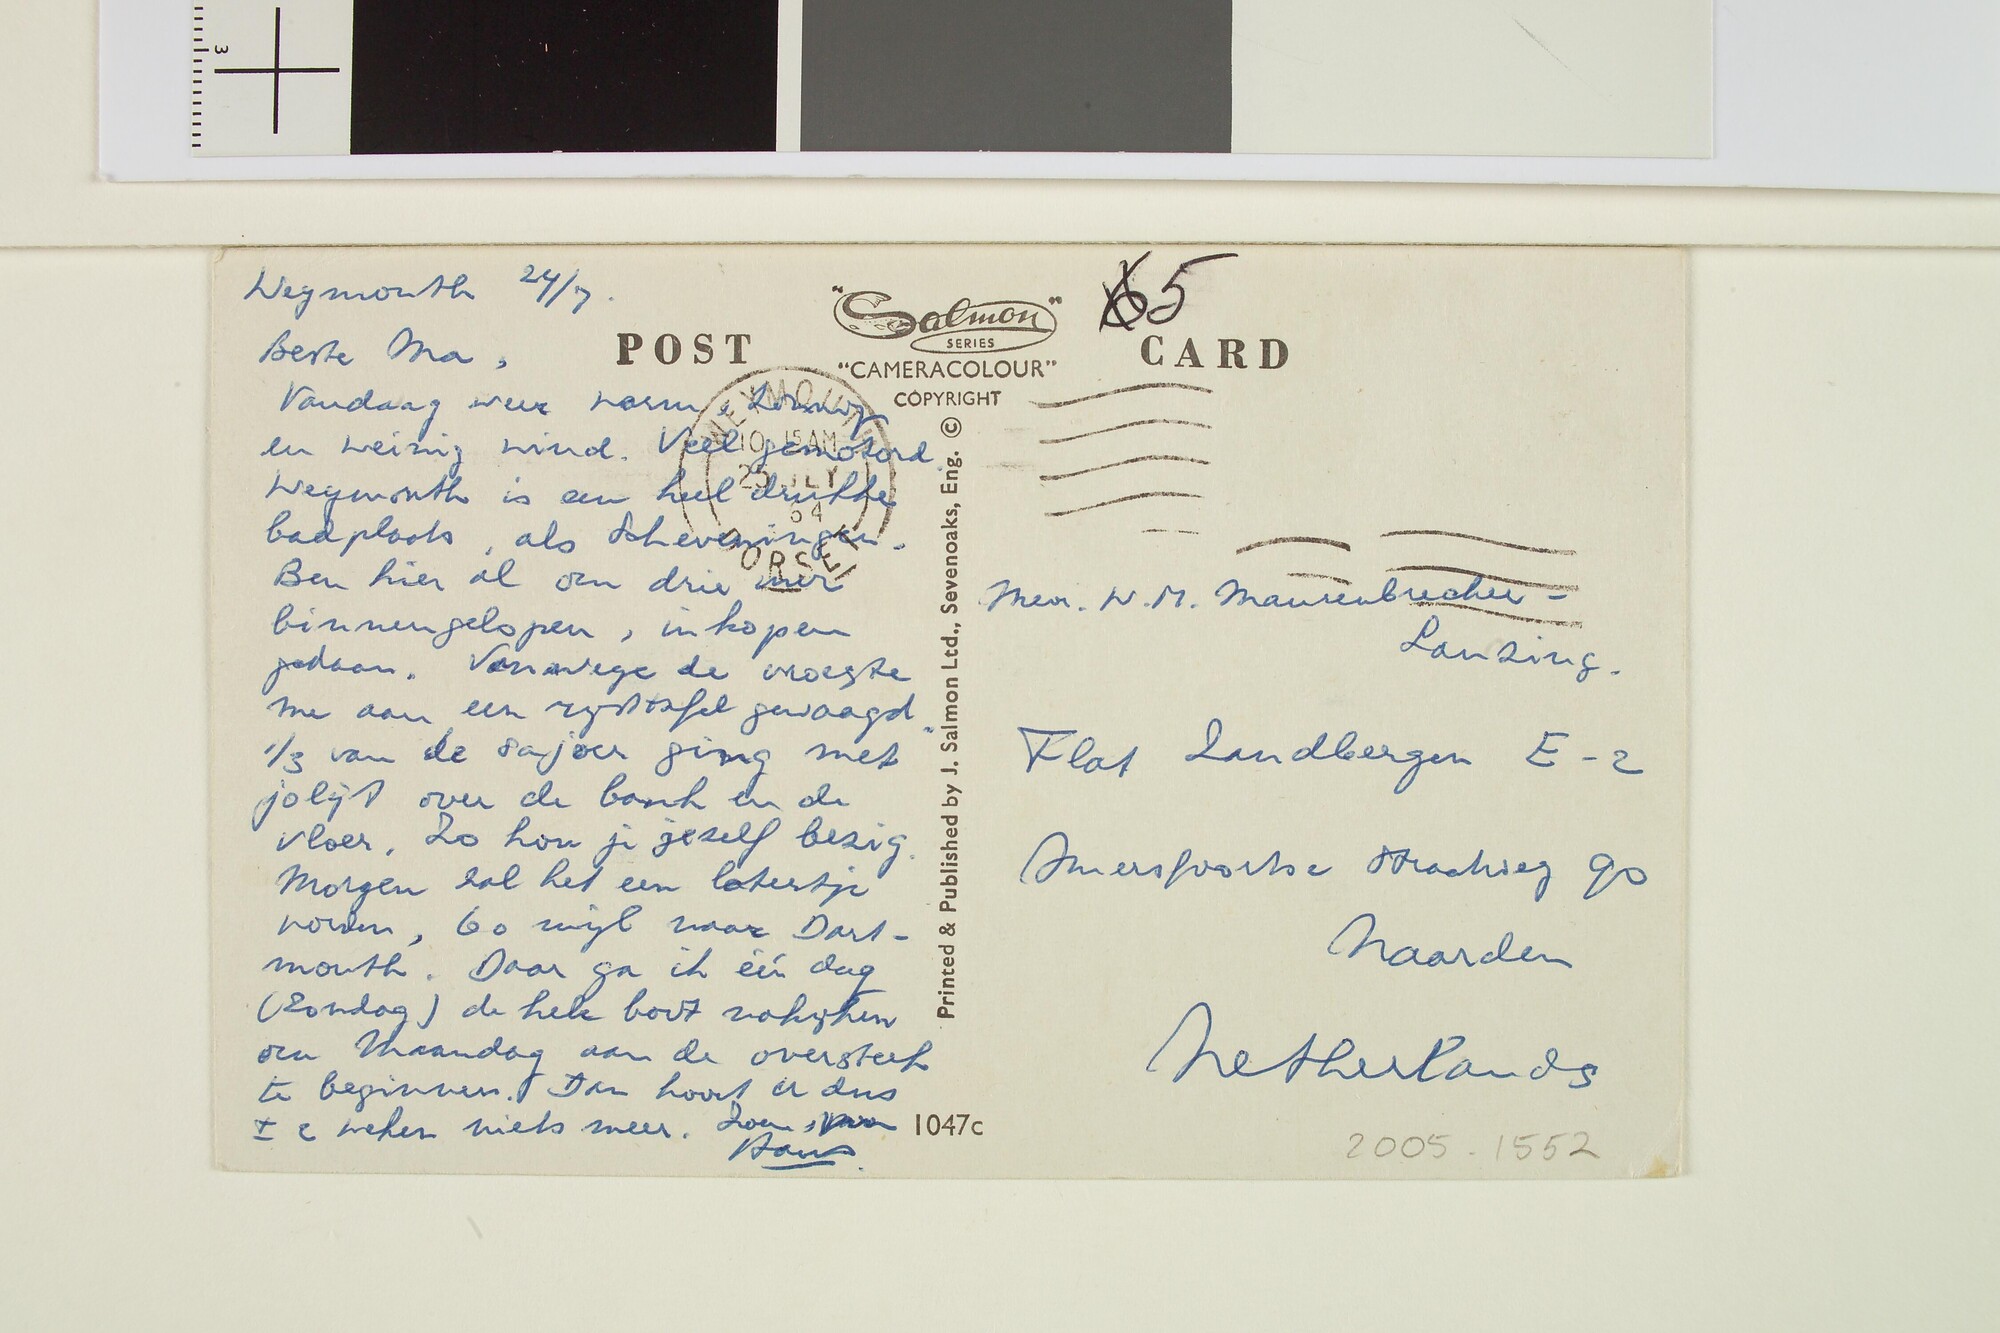 3
Weymouth 24/7.
Beste Ma,
Vandaag weer warm, zonnig
en weinig wind. Veel gemotord.
Weymouth is een heel drukke
badplaats, als Scheveningen.
Ben hier al om drie uur
binnengelopen, inkopen
gedaan. Vanwege de vroegte
me aan een rijsttafel gewaagd.
1/3 van de sajoer ging met
jolijt over de bank en de
vloer. Zo hou je jezelf bezig.
Morgen zal het een latertje
worden, 60 mijl naar Dart-
mouth. Daar ga ik één dag
(Zondag) de hele boot nakijken
om Maandag aan de oversteek
te beginnen. Dan hoort U dus
± 2 weken niets meer. Zoen, van
Hans.
POST CARD
"Salmon"
SERIES
"CAMERACOLOUR"
COPYRIGHT ©
Printed & Published by J. Salmon Ltd., Sevenoaks, Eng.
1047c
WEYMOUTH
10 15 AM
25 JLY
64
DORSET
65
Mevr. W. M. Maurenbrecher -
Lansing.
Flat Zandbergen E-2
Amersfoortse straatweg 90
Naarden
Netherlands
2005.1552